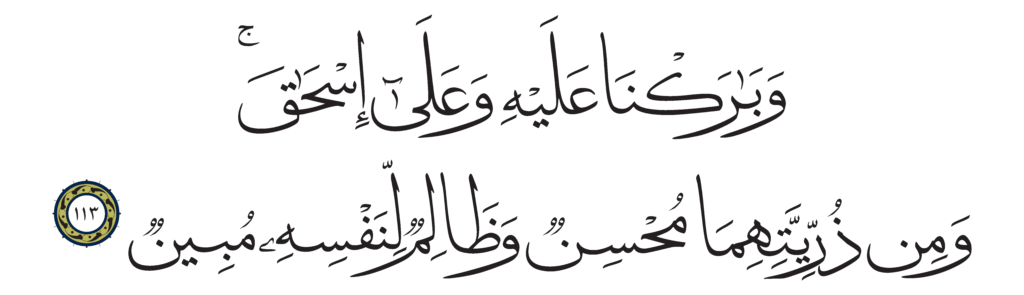 وَبَٰرَكْنَا عَلَيْهِ وَعَلَىٰٓ إِسْحَٰقَ ۚ
وَمِن ذُرِّيَّتِهِمَا مُحْسِنٌ وَظَالِمٌ لِّنَفْسِهِۦ مُبِينٌ ١١٣